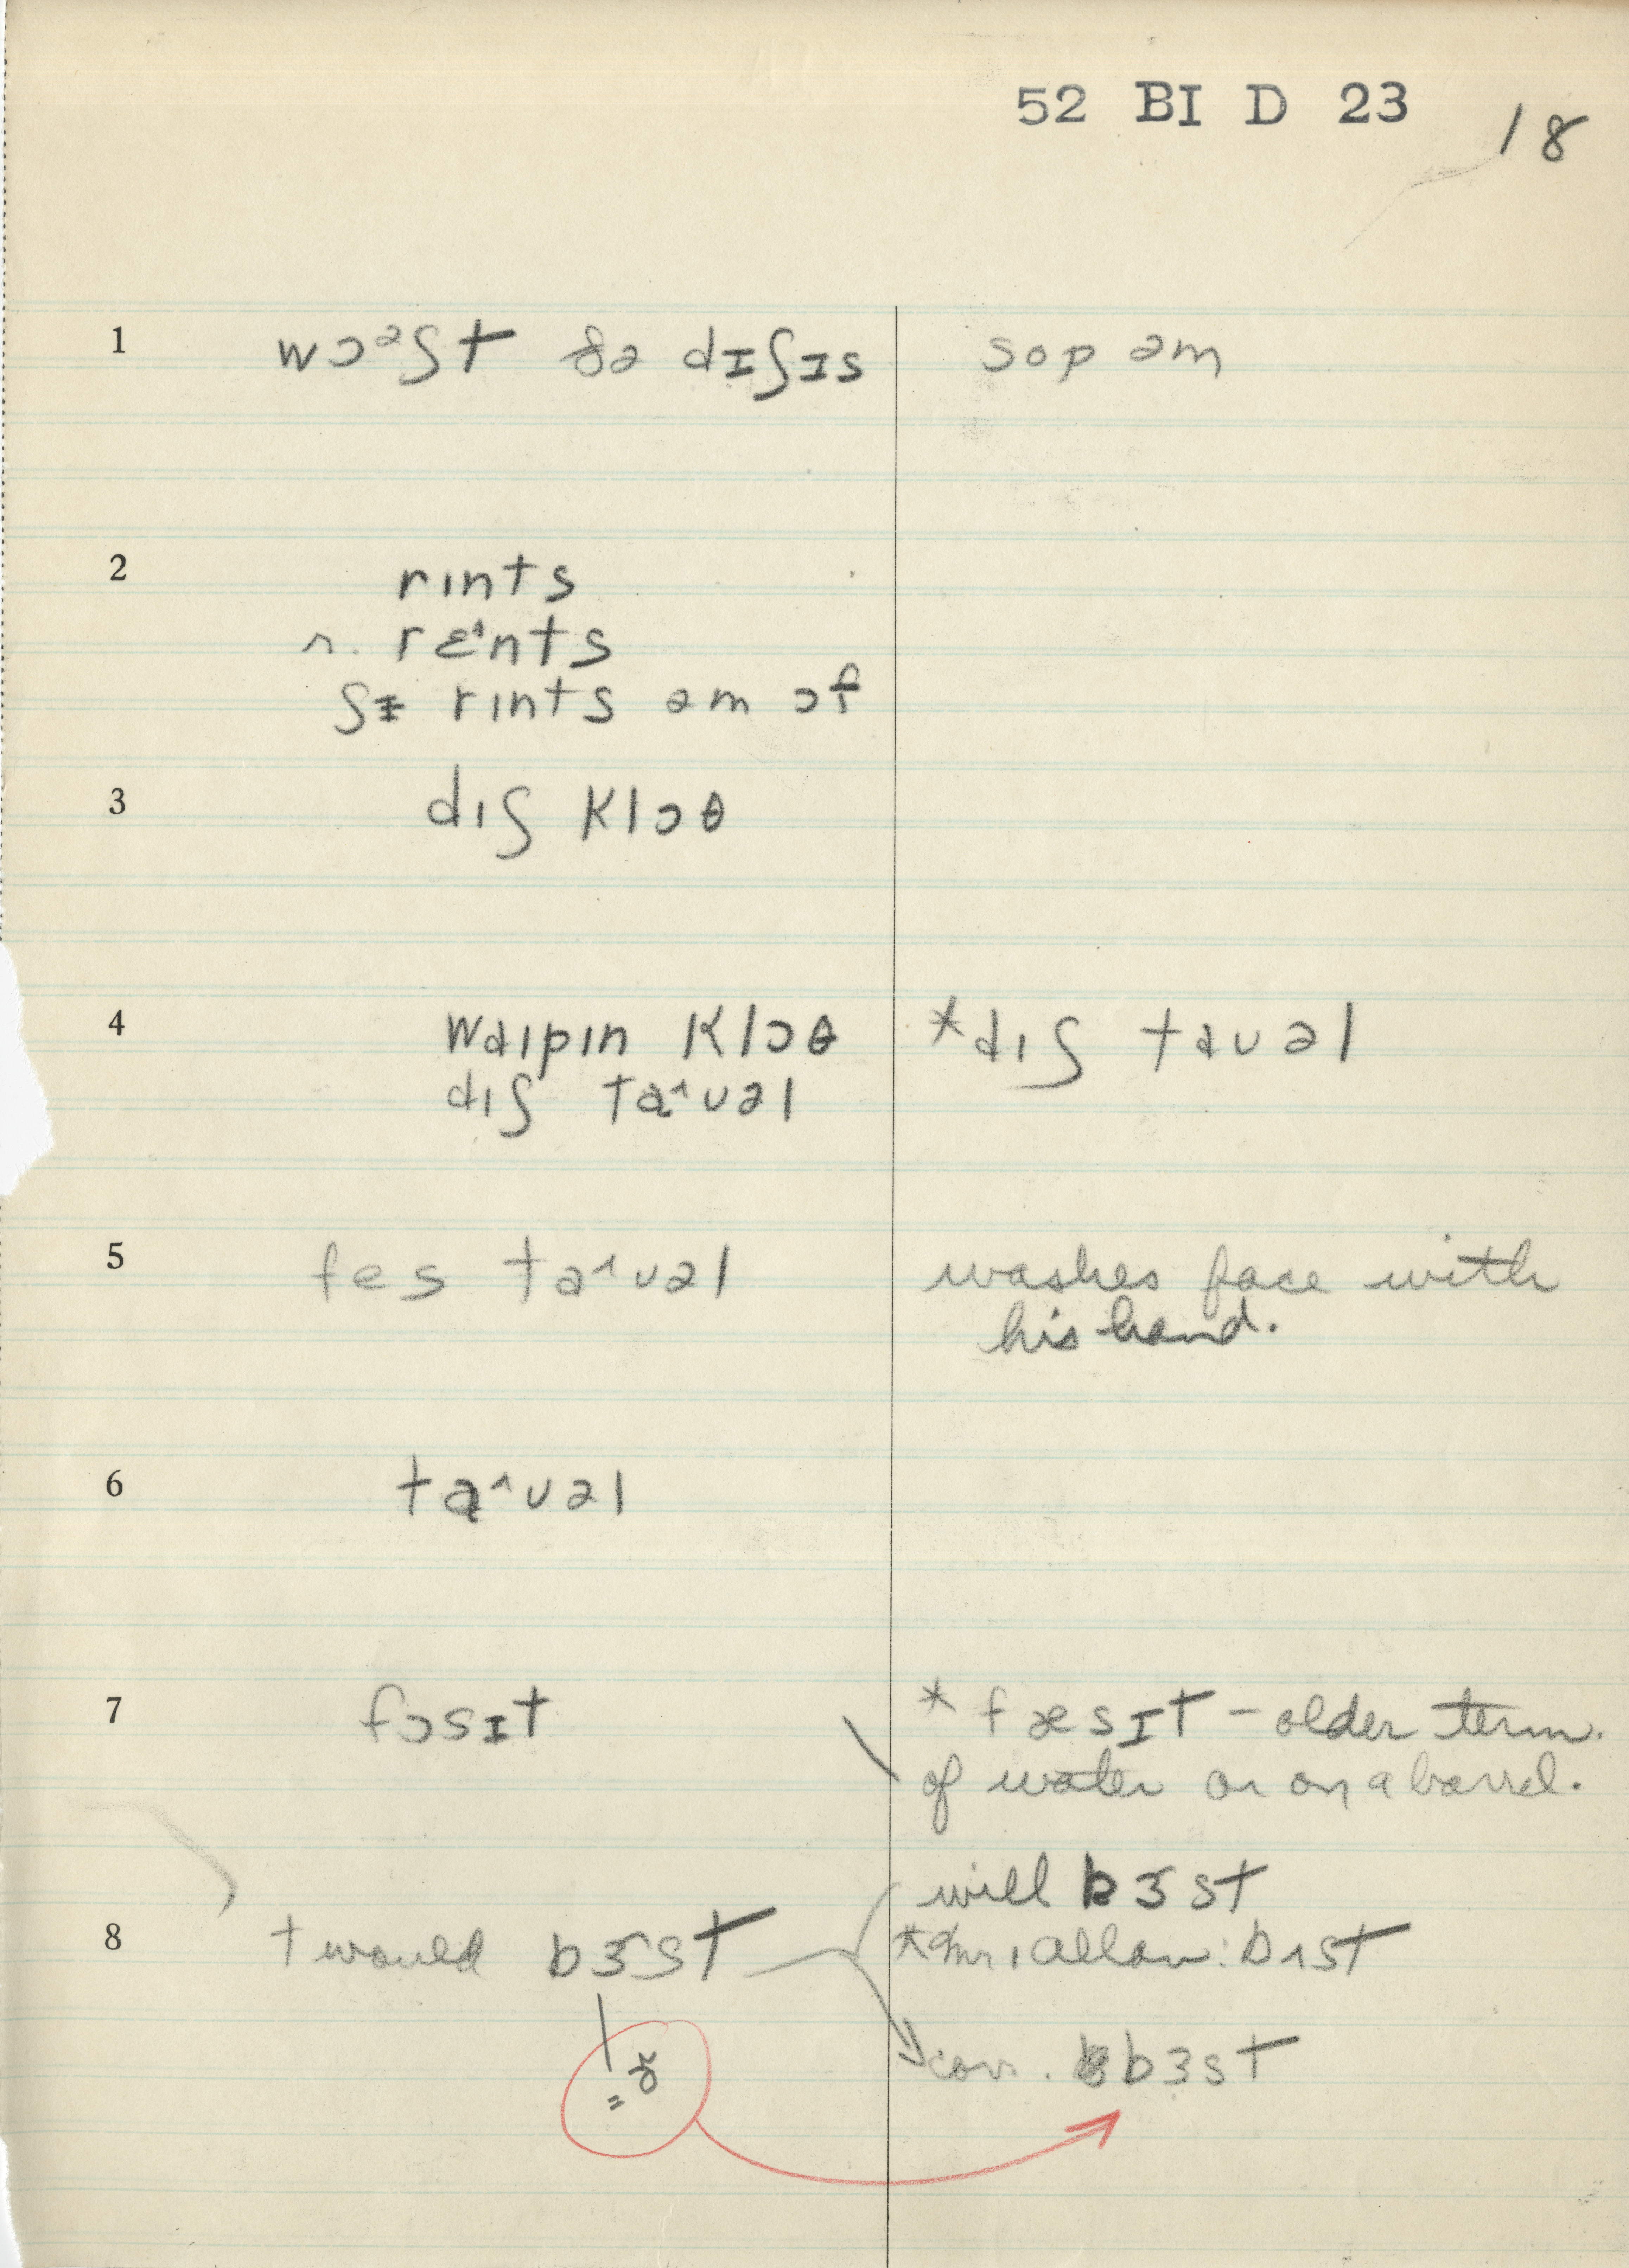 52 BI D 23
18
1 wɔᵊʃt ðə dɪʃɪs sop əm
2 rints
r. rɛ˄nts
ʃɪ rints əm ɔf
3 diʃ klɔθ
4 waipin klɔθ *diʃ tauəl
diʃ ta˄uəl
5 fes ta˄uəl washes face with
his hand.
6 ta˄uəl
7 fɔsɪt *fæsɪt – older term.
of water or on a barrel.
will bɜst
8 † would bɜst *Mr. Allan: bʌst
= ɚ
corr. bɜst